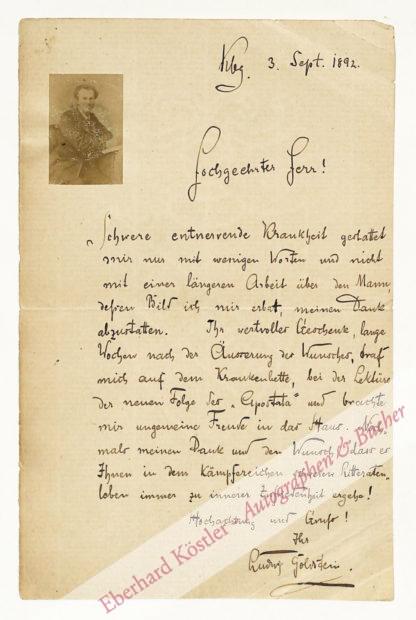 Kbg. 3. Sept. 1892.
Hochgeehrter Herr!
Schwere entnervende Krankheit gestattet
mir nur mit wenigen Worten und nicht
mit einer längeren Arbeit über den Mann,
dessen Bild ich mir erbat, meinen Dank
abzustatten. Ihr wertvolles Geschenk, lange
Wochen nach der Äusserung des Wunsches, traf
mich auf dem Krankenbette, bei der Lektüre
der neuen Folge des „Apostata" und brachte
mir ungemeine Freude in das Haus. Noch
mals meinen Dank und den Wunsch, dass es
Ihnen in dem kämpfereichen Litteraten-
leben immer zu innerer Zufriedenheit ergehe!
Hochachtung und Gruß!
Ihr
Ludwig Goldstein.
Eberhard Köstler - Autographen & Bücher